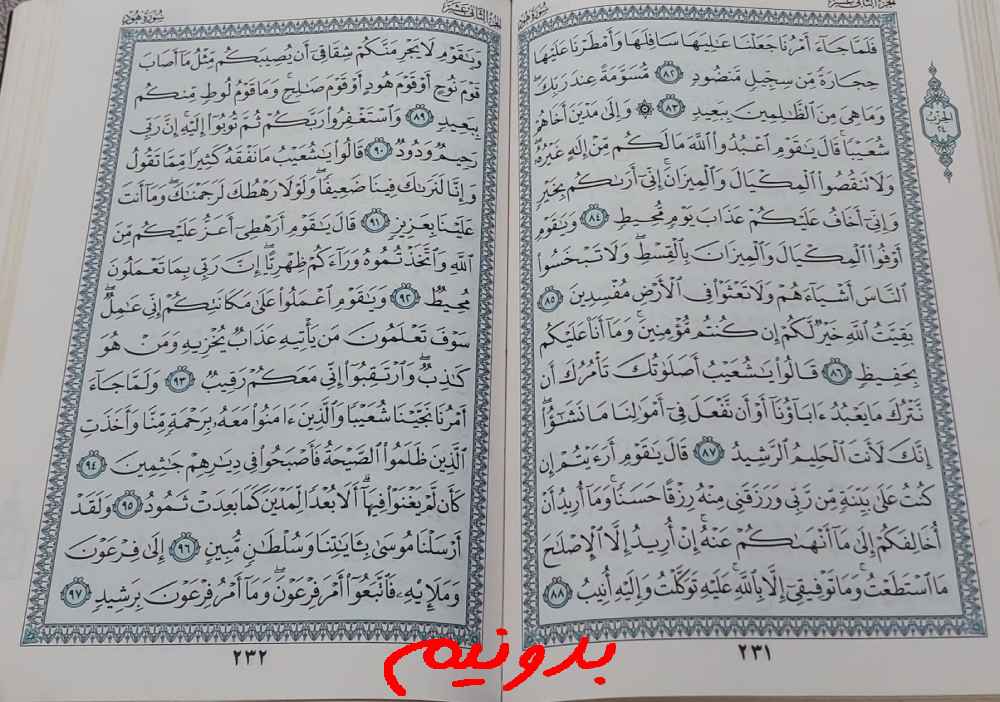 سُورَةُ هُودٍ
الجُزءُ الثَّانِي عَشَر
فَلَمَّا جَآءَ أَمۡرُنَا جَعَلۡنَا عَٰلِيَهَا سَافِلَهَا وَأَمۡطَرۡنَا عَلَيۡهَا
حِجَارَةٗ مِّن سِجِّيلٖ مَّنضُودٖ ٨٢ مُّسَوَّمَةً عِندَ رَبِّكَۖ
وَمَا هِيَ مِنَ ٱلظَّٰلِمِينَ بِبَعِيدٖ ٨٣ ۞ وَإِلَىٰ مَدۡيَنَ أَخَاهُمۡ
شُعَيۡبٗاۚ قَالَ يَٰقَوۡمِ ٱعۡبُدُواْ ٱللَّهَ مَا لَكُم مِّنۡ إِلَٰهٍ غَيۡرُهُۥۖ
وَلَا تَنقُصُواْ ٱلۡمِكۡيَالَ وَٱلۡمِيزَانَۖ إِنِّيٓ أَرَىٰكُم بِخَيۡرٖ
وَإِنِّيٓ أَخَافُ عَلَيۡكُمۡ عَذَابَ يَوۡمٖ مُّحِيطٖ ٨٤ وَيَٰقَوۡمِ
أَوۡفُواْ ٱلۡمِكۡيَالَ وَٱلۡمِيزَانَ بِٱلۡقِسۡطِۖ وَلَا تَبۡخَسُواْ
ٱلنَّاسَ أَشۡيَآءَهُمۡ وَلَا تَعۡثَوۡاْ فِي ٱلۡأَرۡضِ مُفۡسِدِينَ ٨٥
بَقِيَّتُ ٱللَّهِ خَيۡرٞ لَّكُمۡ إِن كُنتُم مُّؤۡمِنِينَۚ وَمَآ أَنَا۠ عَلَيۡكُم
بِحَفِيظٖ ٨٦ قَالُواْ يَٰشُعَيۡبُ أَصَلَوٰتُكَ تَأۡمُرُكَ أَن
نَّتۡرُكَ مَا يَعۡبُدُ ءَابَآؤُنَآ أَوۡ أَن نَّفۡعَلَ فِيٓ أَمۡوَٰلِنَا مَا نَشَٰٓؤُاْۖ
إِنَّكَ لَأَنتَ ٱلۡحَلِيمُ ٱلرَّشِيدُ ٨٧ قَالَ يَٰقَوۡمِ أَرَءَيۡتُمۡ إِن
كُنتُ عَلَىٰ بَيِّنَةٖ مِّن رَّبِّي وَرَزَقَنِي مِنۡهُ رِزۡقًا حَسَنٗاۚ وَمَآ أُرِيدُ أَنۡ
أُخَالِفَكُمۡ إِلَىٰ مَآ أَنۡهَىٰكُمۡ عَنۡهُۚ إِنۡ أُرِيدُ إِلَّا ٱلۡإِصۡلَٰحَ
مَا ٱسۡتَطَعۡتُۚ وَمَا تَوۡفِيقِيٓ إِلَّا بِٱللَّهِۚ عَلَيۡهِ تَوَكَّلۡتُ وَإِلَيۡهِ أُنِيبُ ٨٨
الحِزْب
٢٤
٢٣١
سُورَةُ هُودٍ
الجُزءُ الثَّانِي عَشَر
وَيَٰقَوۡمِ لَا يَجۡرِمَنَّكُمۡ شِقَاقِيٓ أَن يُصِيبَكُم مِّثۡلُ مَآ أَصَابَ
قَوۡمَ نُوحٍ أَوۡ قَوۡمَ هُودٍ أَوۡ قَوۡمَ صَٰلِحٖۚ وَمَا قَوۡمُ لُوطٖ مِّنكُم
بِبَعِيدٖ ٨٩ وَٱسۡتَغۡفِرُواْ رَبَّكُمۡ ثُمَّ تُوبُوٓاْ إِلَيۡهِۚ إِنَّ رَبِّي
رَحِيمٞ وَدُودٞ ٩٠ قَالُواْ يَٰشُعَيۡبُ مَا نَفۡقَهُ كَثِيرٗا مِّمَّا تَقُولُ
وَإِنَّا لَنَرَىٰكَ فِينَا ضَعِيفٗاۖ وَلَوۡلَا رَهۡطُكَ لَرَجَمۡنَٰكَۖ وَمَآ أَنتَ
عَلَيۡنَا بِعَزِيزٖ ٩١ قَالَ يَٰقَوۡمِ أَرَهۡطِيٓ أَعَزُّ عَلَيۡكُم مِّنَ
ٱللَّهِ وَٱتَّخَذۡتُمُوهُ وَرَآءَكُمۡ ظِهۡرِيًّاۖ إِنَّ رَبِّي بِمَا تَعۡمَلُونَ
مُحِيطٞ ٩٢ وَيَٰقَوۡمِ ٱعۡمَلُواْ عَلَىٰ مَكَانَتِكُمۡ إِنِّي عَٰمِلٞۖ
سَوۡفَ تَعۡلَمُونَ مَن يَأۡتِيهِ عَذَابٞ يُخۡزِيهِ وَمَنۡ هُوَ
كَٰذِبٞۖ وَٱرۡتَقِبُوٓاْ إِنِّي مَعَكُمۡ رَقِيبٞ ٩٣ وَلَمَّا جَآءَ
أَمۡرُنَا نَجَّيۡنَا شُعَيۡبٗا وَٱلَّذِينَ ءَامَنُواْ مَعَهُۥ بِرَحۡمَةٖ مِّنَّا وَأَخَذَتِ
ٱلَّذِينَ ظَلَمُواْ ٱلصَّيۡحَةُ فَأَصۡبَحُواْ فِي دِيَٰرِهِمۡ جَٰثِمِينَ ٩٤
كَأَن لَّمۡ يَغۡنَوۡاْ فِيهَآۗ أَلَا بُعۡدٗا لِّمَدۡيَنَ كَمَا بَعِدَتۡ ثَمُودُ ٩٥ وَلَقَدۡ
أَرۡسَلۡنَا مُوسَىٰ بِـَٔايَٰتِنَا وَسُلۡطَٰنٖ مُّبِينٍ ٩٦ إِلَىٰ فِرۡعَوۡنَ
وَمَلَإِيْهِۦ فَٱتَّبَعُوٓاْ أَمۡرَ فِرۡعَوۡنَۖ وَمَآ أَمۡرُ فِرۡعَوۡنَ بِرَشِيدٖ ٩٧
٢٣٢
بدونيم